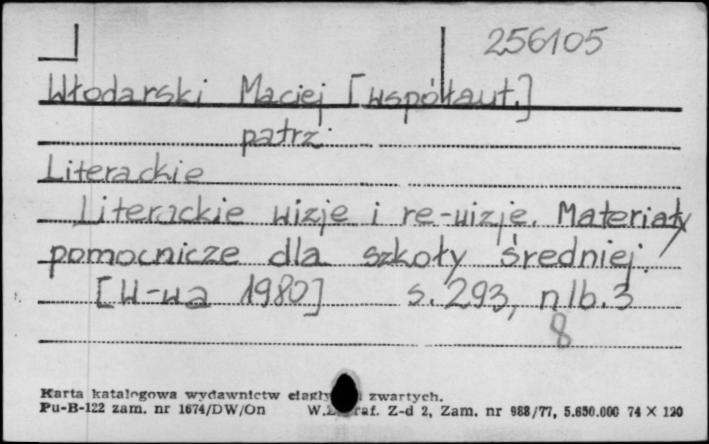 256105
Włodarski Maciej [współaut.]
patrz
Literackie
Literackie wizje i re-wizje. Materiały
pomocnicze dla szkoły średniej.
[W-wa 1980] s. 293, nlb. 3
8
Karta katalogowa wydawnictw zwartych.
Pu-B-122 zam. nr 1674/DW/On Z-d 2, Zam. nr 988/77, 5.650.000 74 × 120